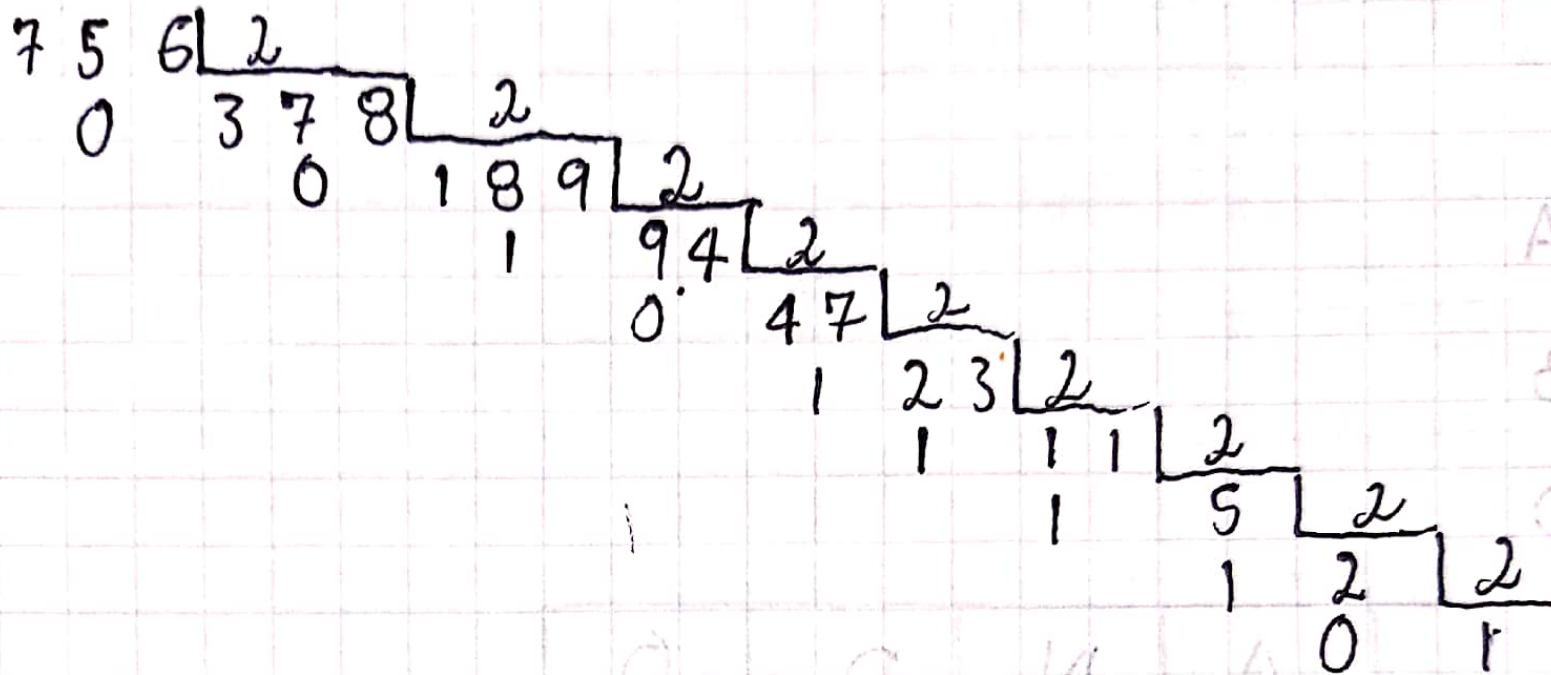 7 5 6 2
0 3 7 8 2
0 1 8 9 2
1 9 4 2
0 4 7 2
1 2 3 2
1 1 1 2
1 5 2
1 2 2
0 1